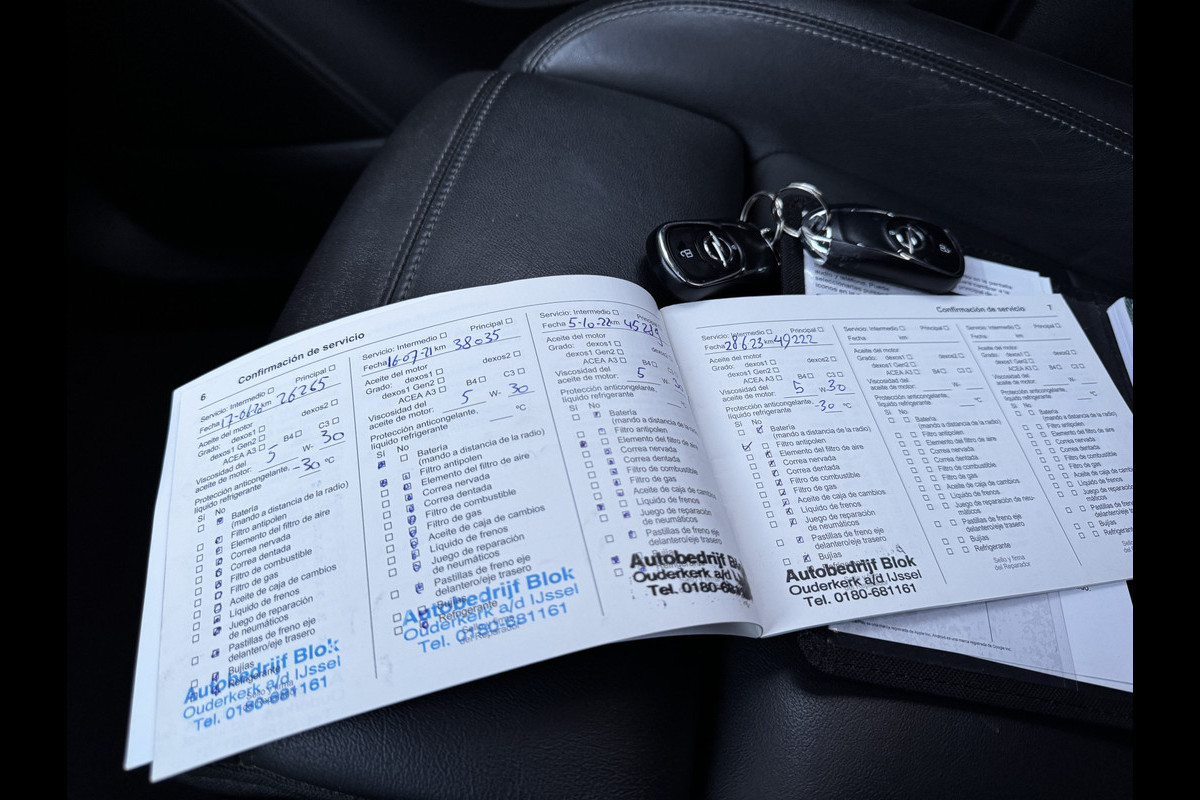 6
Confirmación de servicio
Servicio: Intermedio Principal
Fecha km 26265
Aceite del motor
Grado: dexos1 dexos2
dexos1 Gen2
ACEA A3 B4 C3
Viscosidad del
aceite de motor: 5 W- 30
Protección anticongelante,
líquido refrigerante -30 °C
Sí No
Batería
(mando a distancia de la radio)
Filtro antipolen
Elemento del filtro de aire
Correa nervada
Correa dentada
Filtro de combustible
Filtro de gas
Aceite de caja de cambios
Líquido de frenos
Juego de reparación
de neumáticos
Pastillas de freno eje
delantero/eje trasero
Bujías
Refrigerante
Autobedrijf Blok
Ouderkerk a/d IJssel
Tel. 0180-681161
Servicio: Intermedio Principal
Fecha 16-07-21 km 38035
Aceite del motor
Grado: dexos1 dexos2
dexos1 Gen2
ACEA A3 B4 C3
Viscosidad del
aceite de motor: 5 W- 30
Protección anticongelante,
líquido refrigerante °C
Sí No
Batería
(mando a distancia de la radio)
Filtro antipolen
Elemento del filtro de aire
Correa nervada
Correa dentada
Filtro de combustible
Filtro de gas
Aceite de caja de cambios
Líquido de frenos
Juego de reparación
de neumáticos
Pastillas de freno eje
delantero/eje trasero
Bujías
Refrigerante
Autobedrijf Blok
Ouderkerk a/d IJssel
Tel. 0180-681161
Servicio: Intermedio
Fecha 5-10-22 km
Aceite del motor
Grado: dexos1
dexos1 Gen2
ACEA A3 B4
Viscosidad del
aceite de motor: 5
Protección anticongelante,
líquido refrigerante
Sí No
Batería
(mando a distancia
Filtro antipolen
Elemento del filtro de aire
Correa nervada
Correa dentada
Filtro de combustible
Filtro de gas
Aceite de caja de cambios
Líquido de frenos
Juego de reparación
de neumáticos
Pastillas de freno eje
delantero/eje trasero
Autobedrijf
Ouderkerk a/d
Tel. 0180-68
Confirmación de servicio
7
Servicio: Intermedio Principal
Fecha 28.6.23 km 49222
Aceite del motor
Grado: dexos1 dexos2
dexos1 Gen2
ACEA A3 B4 C3
Viscosidad del
aceite de motor: 5 W 30
Protección anticongelante,
líquido refrigerante -30 °C
Sí No
Batería
(mando a distancia de la radio)
Filtro antipolen
Elemento del filtro de aire
Correa nervada
Correa dentada
Filtro de combustible
Filtro de gas
Aceite de caja de cambios
Líquido de frenos
Juego de reparación
de neumáticos
Pastillas de freno eje
delantero/eje trasero
Bujías
Autobedrijf Blok
Ouderkerk a/d IJssel
Tel. 0180-681161
Servicio: Intermedio Principal
Fecha km
Aceite del motor
Grado: dexos1 dexos2
dexos1 Gen2
ACEA A3 B4 C3
Viscosidad del
aceite de motor: W-
Protección anticongelante,
líquido refrigerante °C
Sí No
Batería
(mando a distancia de la radio)
Filtro antipolen
Elemento del filtro de aire
Correa nervada
Correa dentada
Filtro de combustible
Filtro de gas
Aceite de caja de cambios
Líquido de frenos
Juego de reparación de neu-
máticos
Pastillas de freno eje
delantero/eje trasero
Bujías
Refrigerante
Sello y firma
del Reparador
Servicio: Intermedio Principal
Fecha km
Aceite del motor
Grado: dexos1 dexos2
dexos1 Gen2
ACEA A3 B4 C3
Viscosidad del
aceite de motor: W-
Protección anticongelante,
líquido refrigerante
Sí No
Batería
(mando a distancia de la radio)
Filtro antipolen
Elemento del filtro de aire
Correa nervada
Correa dentada
Filtro de combustible
Filtro de gas
Aceite de caja de cambios
Líquido de frenos
Juego de reparación
de neumáticos
Pastillas de freno eje
delantero/eje trasero
Bujías
Refrigerante